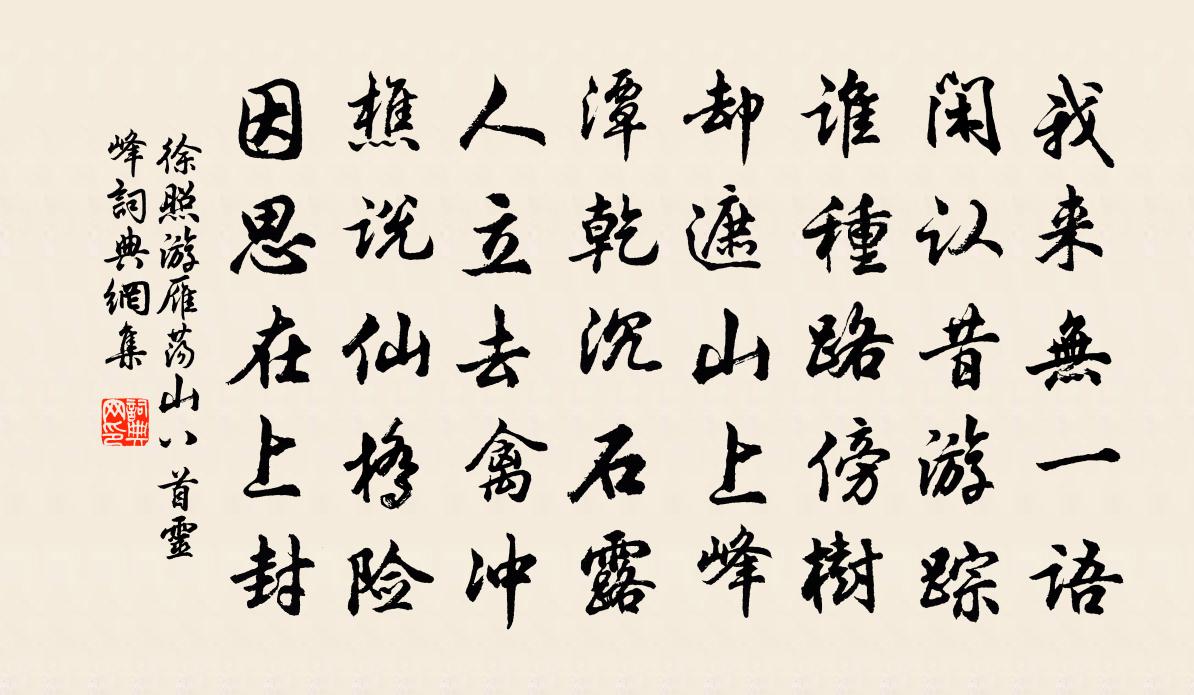 我来無一語
闲认昔游踪
谁種路傍樹
却遮山上峰
潭乾沉石露
人立去禽冲
樵说仙橋险
因思在上封
徐照游雁荡山八首靈
峰詞典網集
詞典
网印